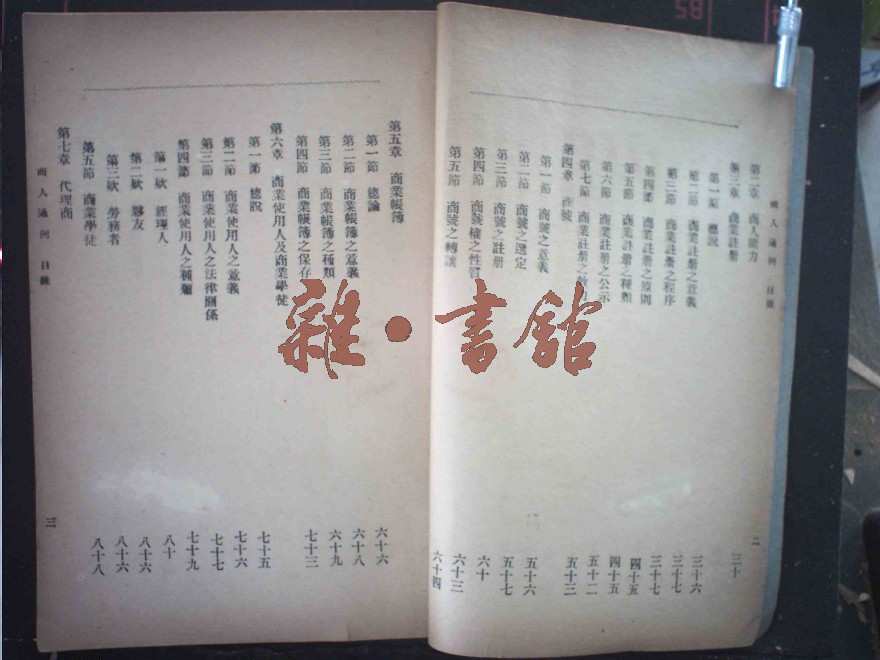 商人通例 目錄
二
第二章 商人能力
三十
第三章 商業註冊
第一節 總說
三十六
第二節 商業註冊之意義
三十七
第三節 商業註冊之程序
三十七
第四節 商業註冊之原則
四十五
第五節 商業註冊之種類
四十五
第六節 商業註冊之公示
五十二
第七節 商業註冊之效力
五十三
第四章 商號
第一節 商號之意義
五十六
第二節 商號之選定
五十七
第三節 商號之註冊
六十
第四節 商號權之性質
六十三
第五節 商號之轉讓
六十四
第五章 商業帳簿
第一節 總論
六十六
第二節 商業帳簿之意義
六十八
第三節 商業帳簿之種類
六十九
第四節 商業帳簿之保存
七十三
第六章 商業使用人及商業學徒
第一節 總說
七十五
第二節 商業使用人之意義
七十六
第三節 商業使用人之法律關係
七十七
第四節 商業使用人之種類
七十九
第一欵 經理人
八十
第二欵 夥友
八十六
第三欵 勞務者
八十六
第五節 商業學徒
八十八
第七章 代理商
商人通例 目錄
三
雜·書館